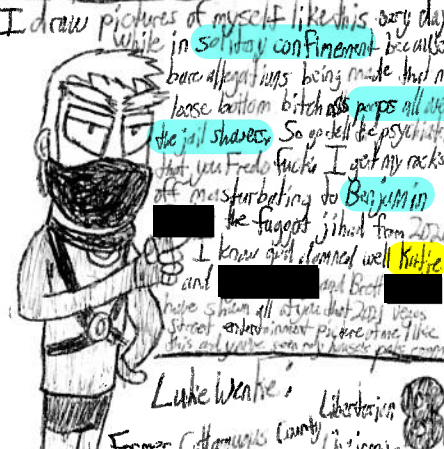 I draw pictures of myself like this every day
while in solitary confinement because
bare allegations being made that
loose bottom bitch ass peeps all over
the jail showers. So go tell the psychiatr
that you Fredo fucks I get my rocks
off masturbating to Benjamin
the faggot jihad from 202
I know god damned well Katie
and and Brett
have shown all of you that 2021 Vegas
Street entertainment picture of me I use
this and
Luke Wenke:
Libertarian
Former Cattaraugus County